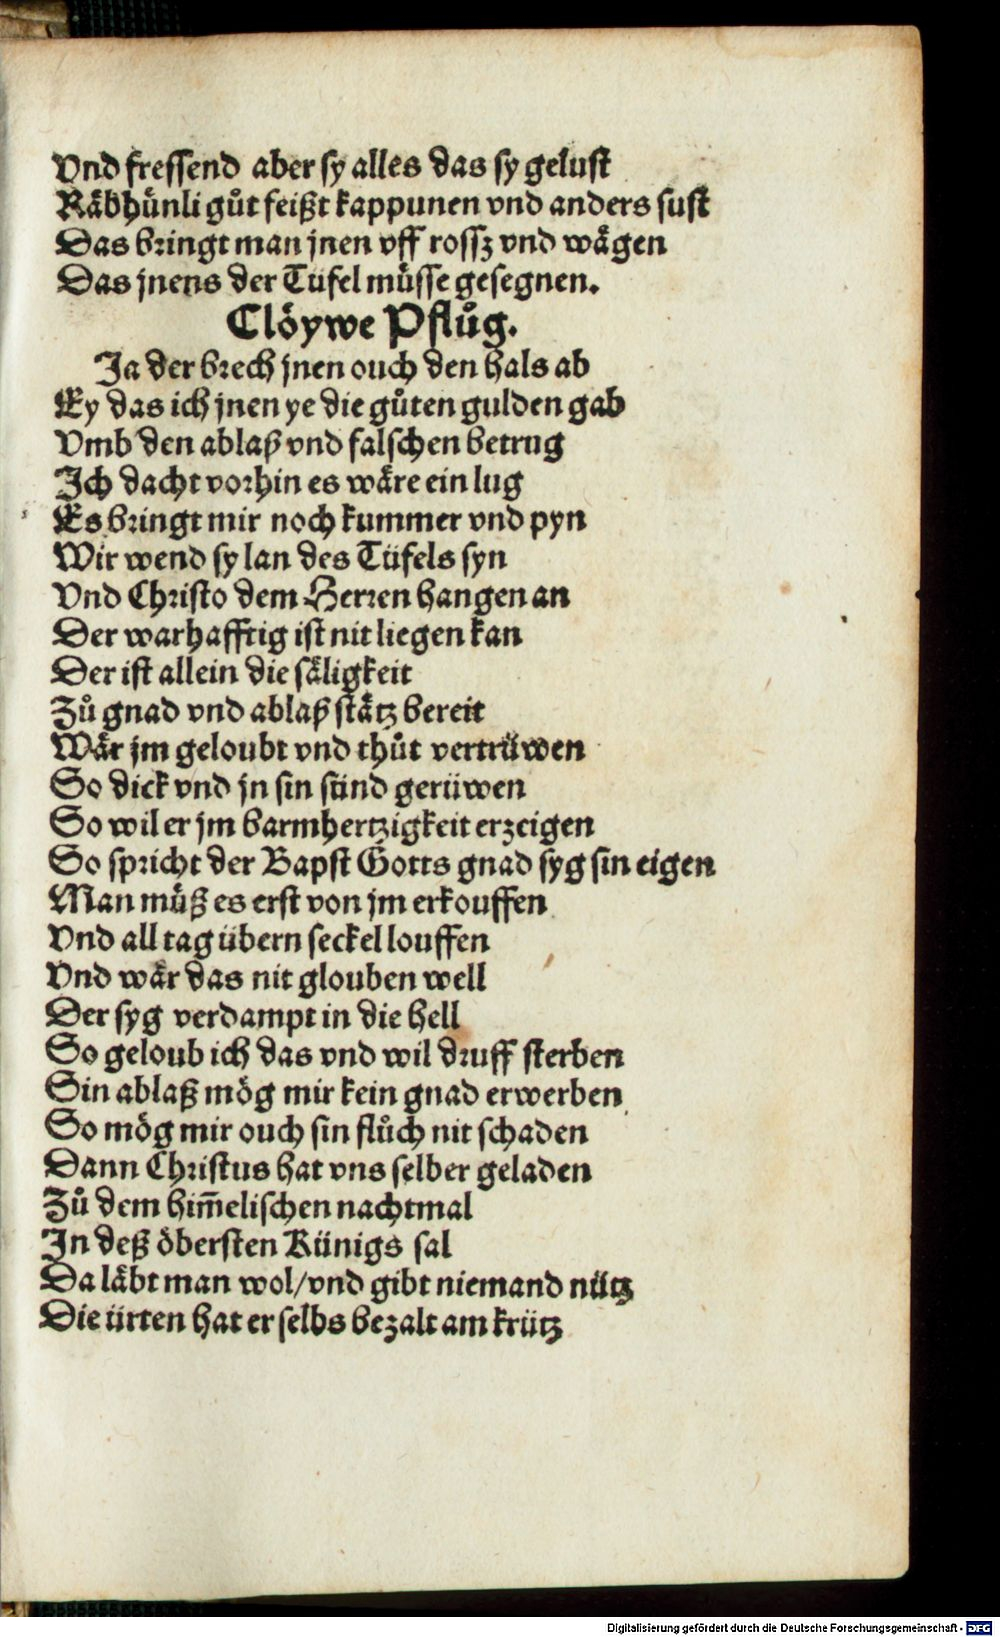 Vnd fressend aber sy alles das sy gelust
Räbhünli gůt feißt kappunen vnd anders sust
Das bringt man jnen vff rossz vnd wägen
Das jnens der Tüfel müsse gesegnen.
Clöywe Pflůg.
Ja der brech jnen ouch den hals ab
Ey das ich jnen ye die gůten gulden gab
Vmb den ablaß vnd falschen betrug
Ich dacht vorhin es wäre ein lug
Es bringt mir noch kummer vnd pyn
Wir wend sy lan des Tüfels syn
Vnd Christo dem Herren hangen an
Der warhafftig ist nit liegen kan
Der ist allein die säligkeit
Zů gnad vnd ablaß stätz bereit
Wär jm geloubt vnd thůt vertrüwen
So dick vnd jn sin sünd gerüwen
So wil er jm barmhertzigkeit erzeigen
So spricht der Bapst Gotts gnad syg sin eigen
Man müß es erst von jm erkouffen
Vnd all tag übern seckel louffen
Vnd wär das nit glouben well
Der syg verdampt in die hell
So geloub ich das vnd wil druff sterben
Sin ablaß mög mir kein gnad erwerben
So mög mir ouch sin flůch nit schaden
Dann Christus hat vns selber geladen
Zů dem him̄elischen nachtmal
In deß öbersten Künigs sal
Da läbt man wol/vnd gibt niemand nütz
Die ürten hat er selbs bezalt am krütz
Digitalisierung gefördert durch die Deutsche Forschungsgemeinschaft - DFG